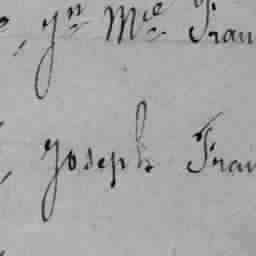 , Jn Mce Fran
, Joseph Fran